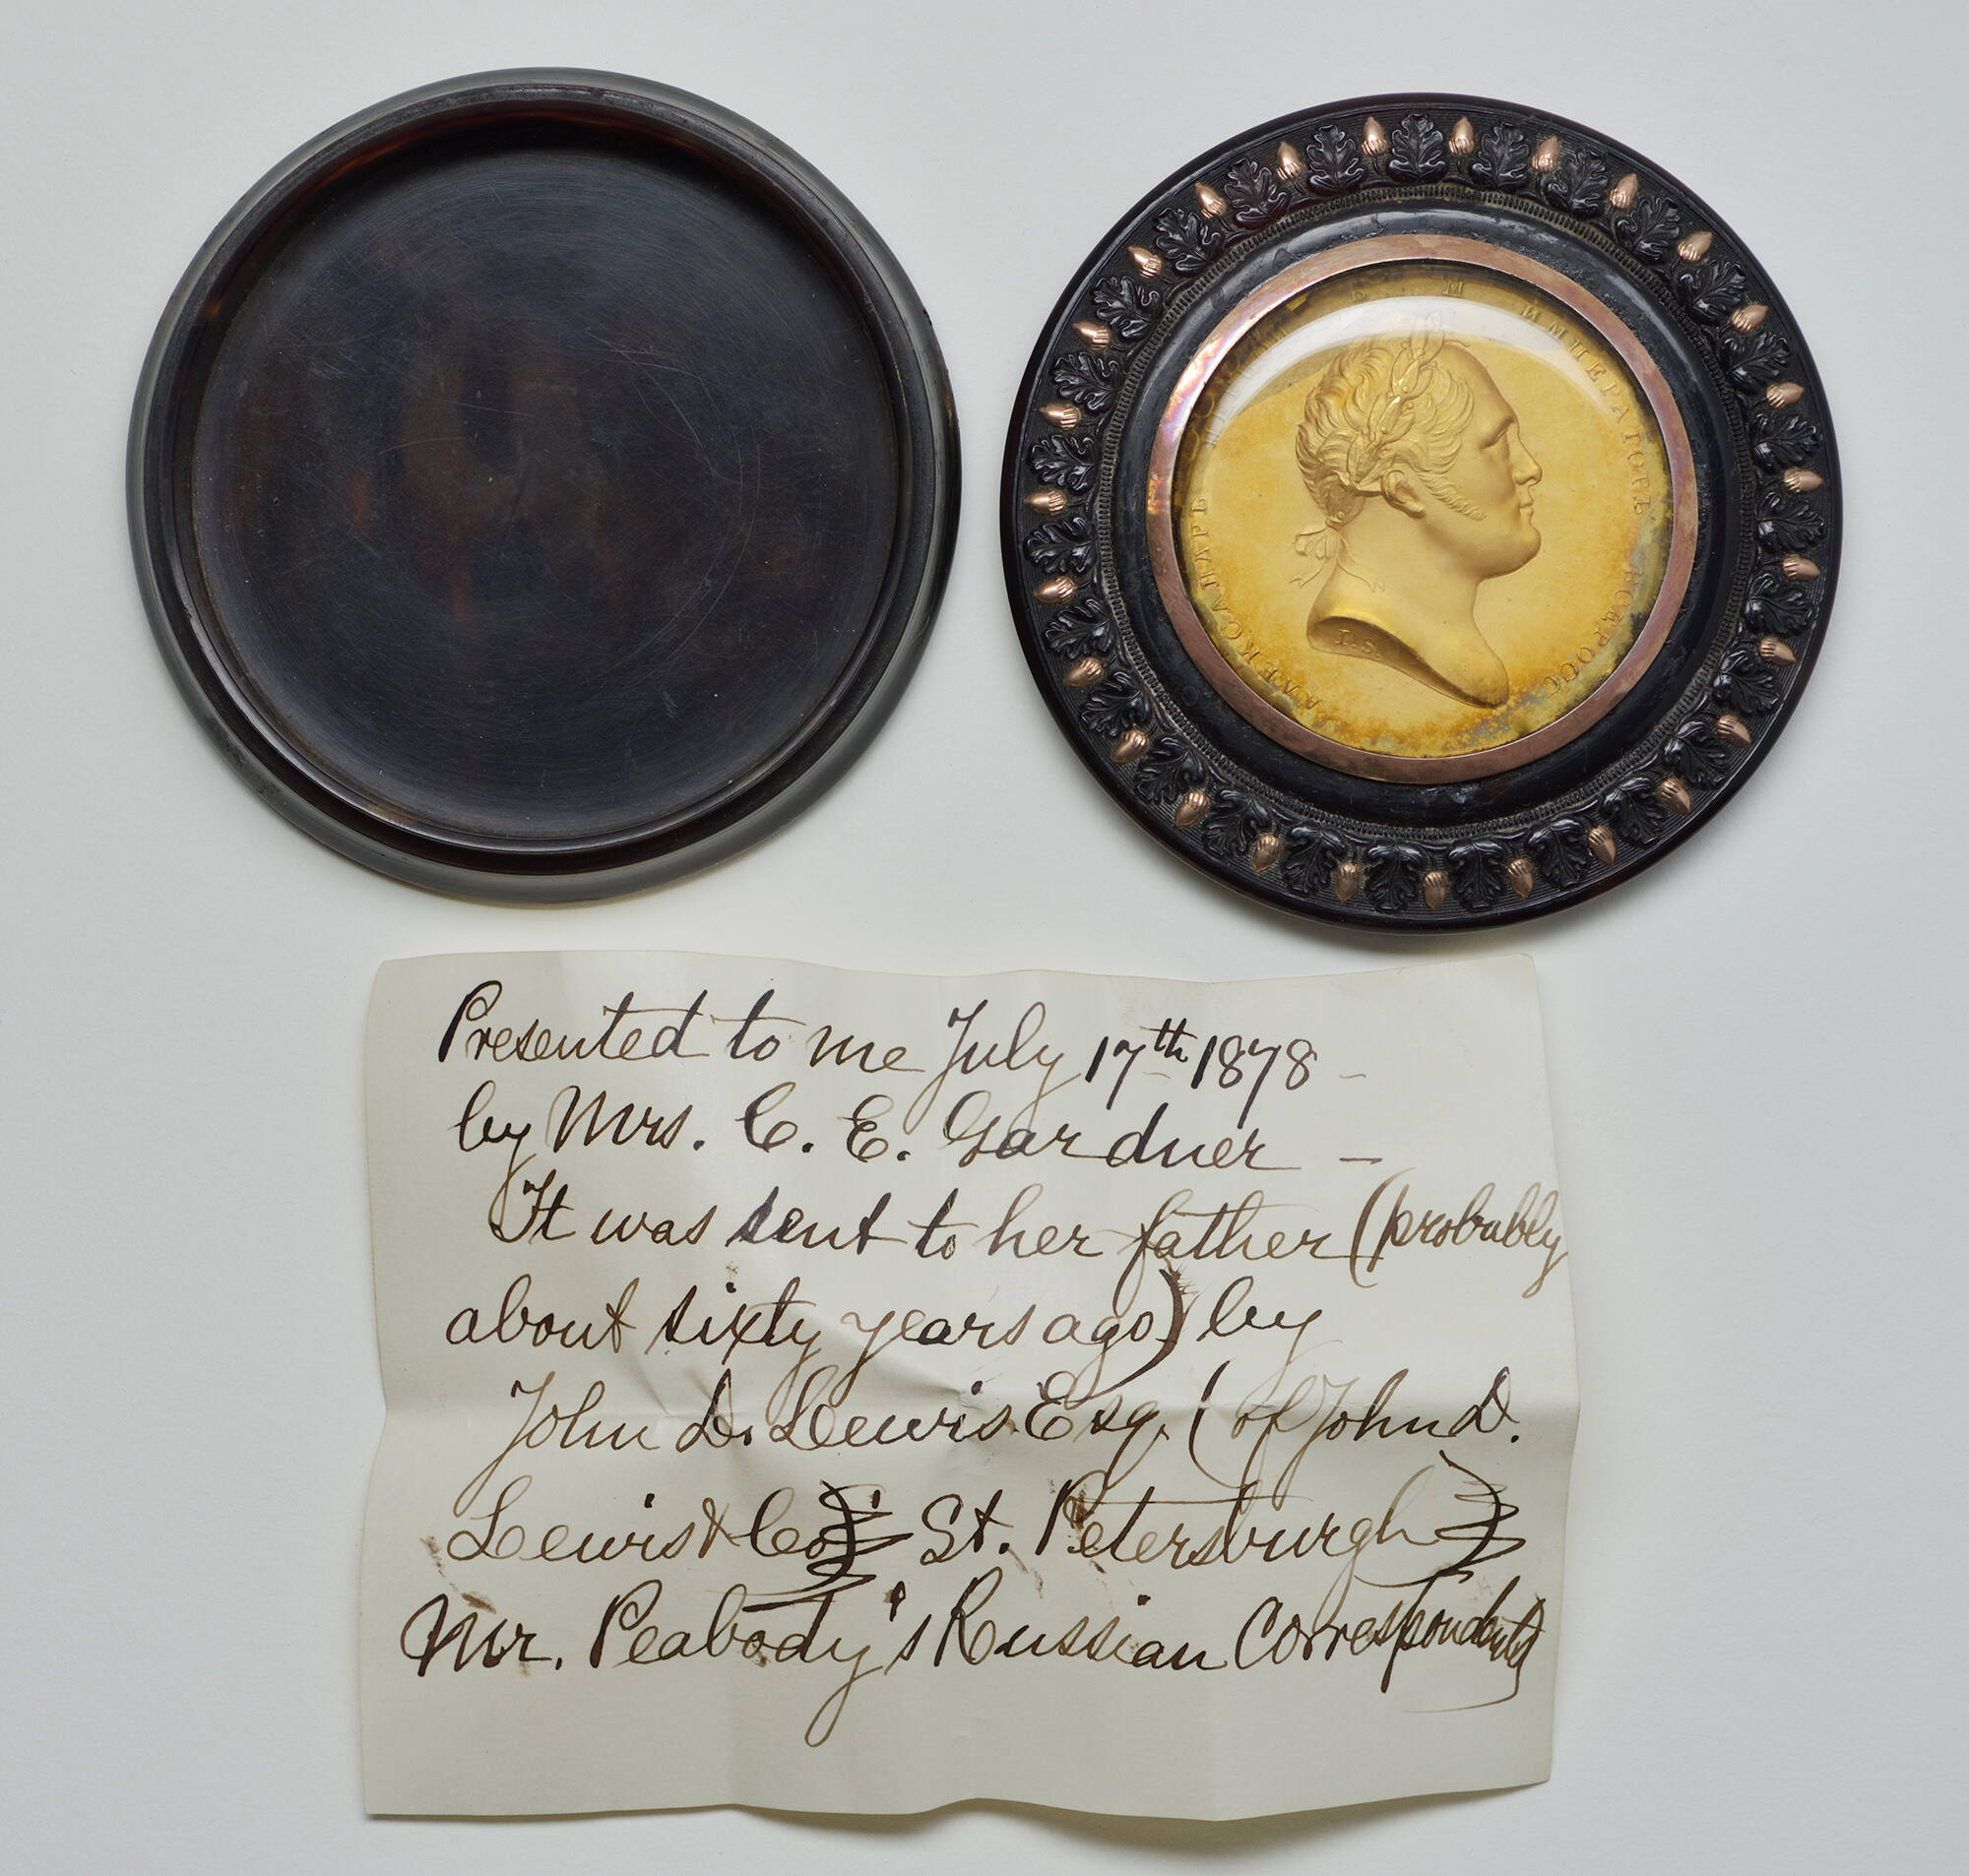 АЛЕКСАНДРЪ Б. М. ИМПЕРАТОРЪ ВСЕРОСС.
I.S.
Presented to me July 17th 1878 -
by Mrs. C. E. Gardner —
It was sent to her father (probably
about sixty years ago) by
John D. Lewis Esq. (of John D.
Lewis & Co) St. Petersburgh)
Mr. Peabody's Russian Correspondents